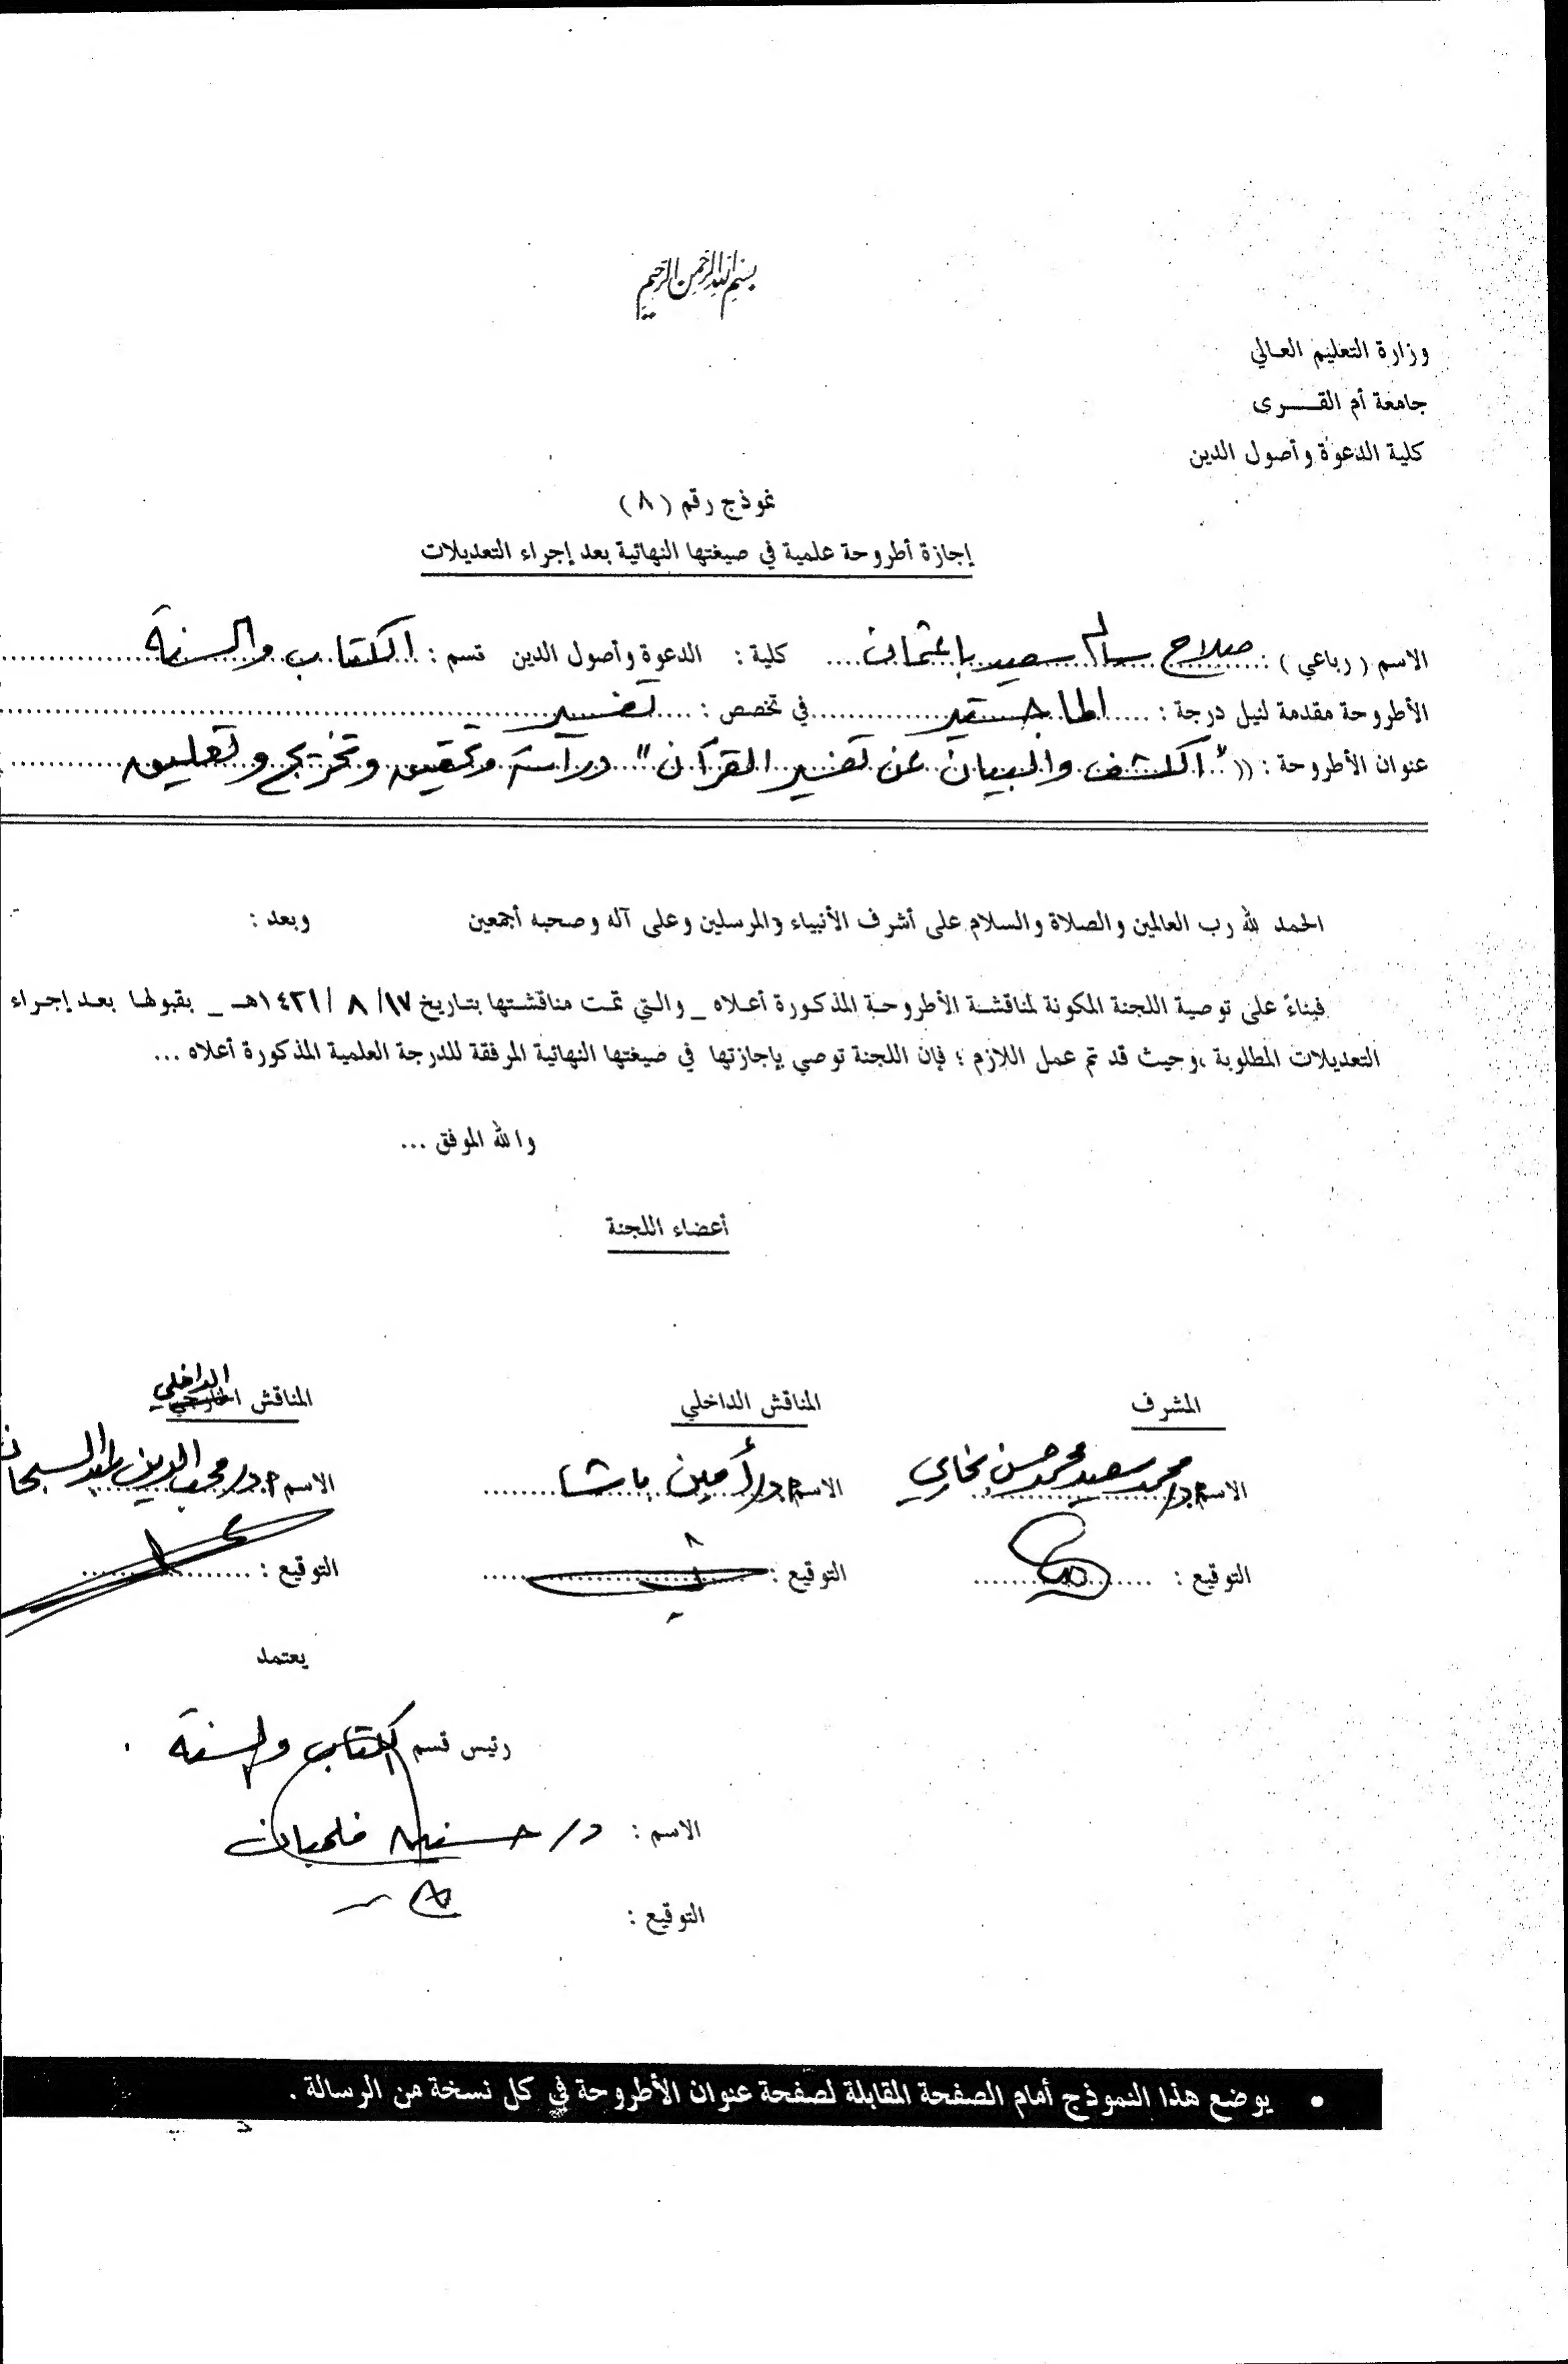 بسم الله الرحمن الرحيم
وزارة التعليم العالي
جامعة أم القــــرى
كلية الدعوة وأصول الدين
نموذج رقم ( ٨ )
إجازة أطروحة علمية في صيغتها النهائية بعد إجراء التعديلات
الاسم ( رباعي ) : صلاح سالم سعيد باعثمان كلية : الدعوة وأصول الدين قسم : الكتاب والسنة
الأطروحة مقدمة لنيل درجة : الماجستير في تخصص : تفسير
عنوان الأطروحة : (( " الكشف والبيان عن تفسير القرآن " دراسة وتحقيق وتخريج وتعليق
الحمد لله رب العالمين والصلاة والسلام على أشرف الأنبياء والمرسلين وعلى آله وصحبه أجمعين وبعد :
فبناءً على توصية اللجنة المكونة لمناقشة الأطروحة المذكورة أعلاه _ والتي تمت مناقشتها بتاريخ ١٧/ ٨ /١٤٢١هـ _ بقبولها بعد إجراء
التعديلات المطلوبة ، وحيث قد تم عمل اللازم ؛ فإن اللجنة توصي بإجازتها في صيغتها النهائية المرفقة للدرجة العلمية المذكورة أعلاه ...
والله الموفق ...
أعضاء اللجنة
المشرف المناقش الداخلي المناقش الخارجي الداخلي
الاسم أ.د/ محمد سعيد محمد حسن بخاري الاسم أ.د/ أمين باشا الاسم أ.د/ محب الدين عبد السبحان
التوقيع : التوقيع : التوقيع :
يعتمد
رئيس قسم الكتاب والسنة
الاسم : د/ حسنين فلمبان
التوقيع :
• يوضع هذا النموذج أمام الصفحة المقابلة لصفحة عنوان الأطروحة في كل نسخة من الرسالة .